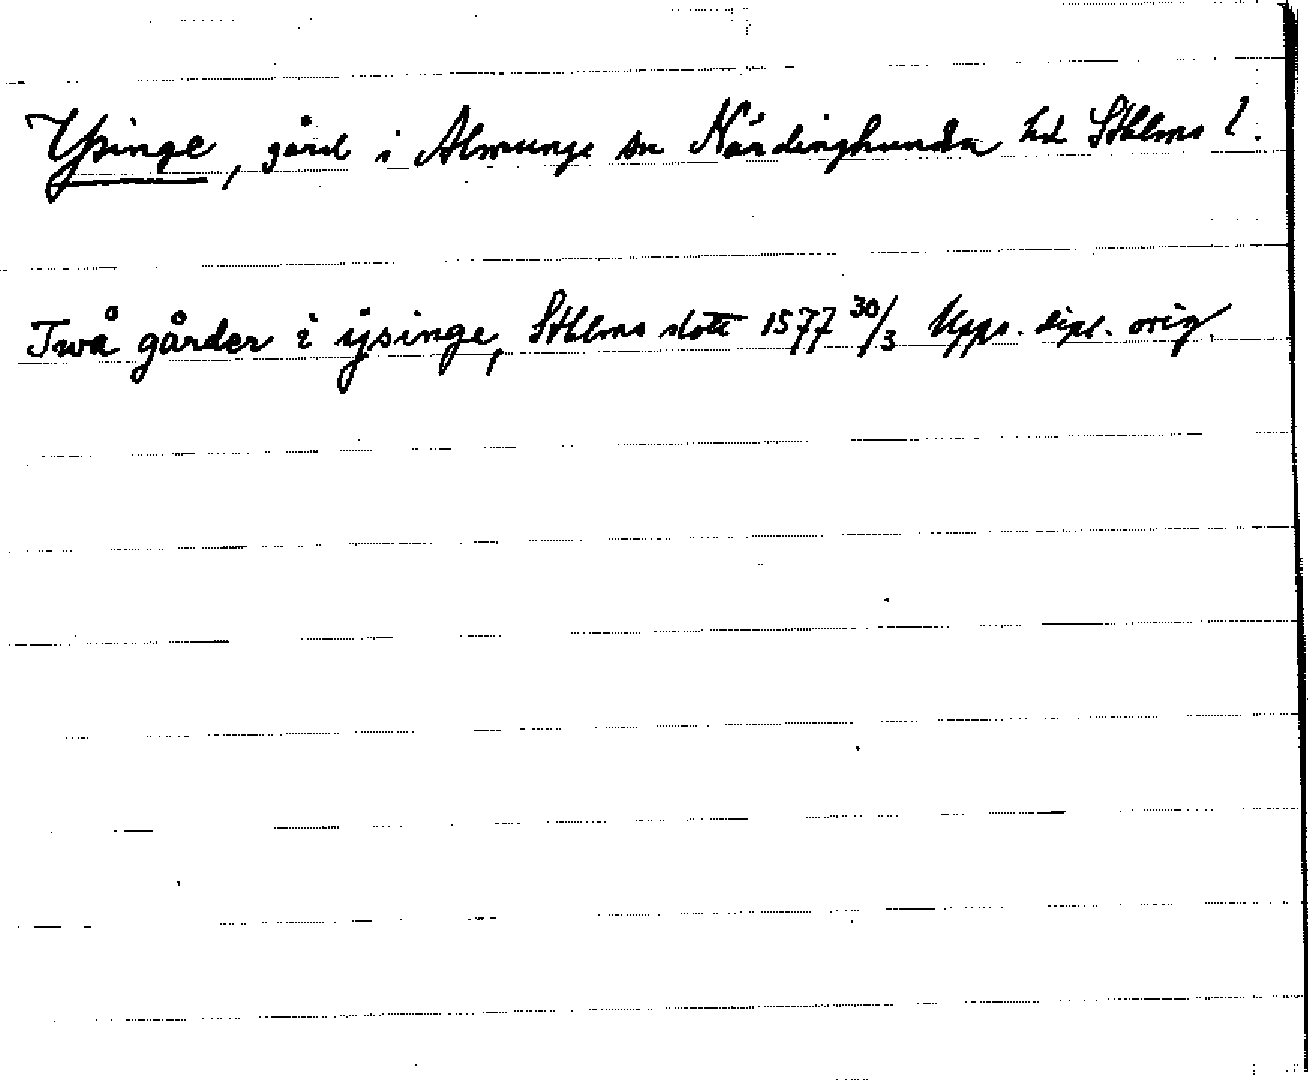 Ysinge, gård i Almunge sn Närdinghundra hd Sthlms l.
Twå gårder i ÿsinge, Sthlms slott 1577 30/3 Upps. dipl. orig.